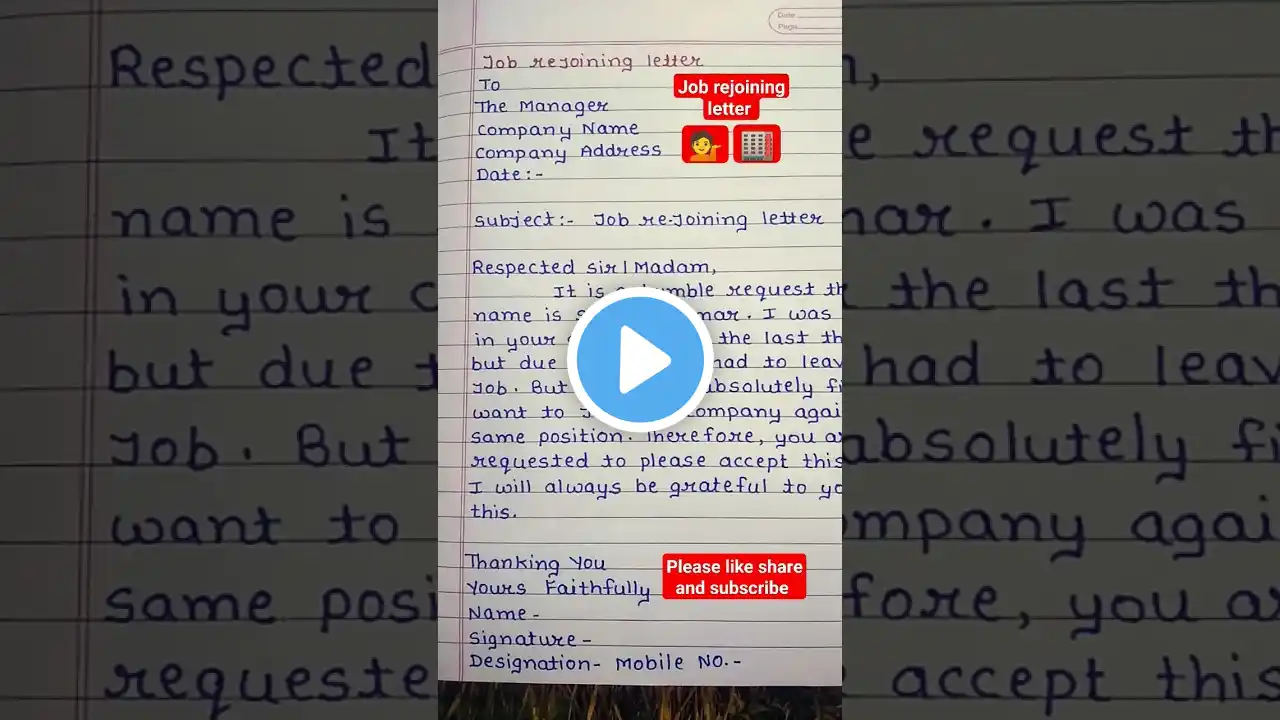 Date
Page
Job rejoining letter
To
The Manager
Company Name
Company Address
Date:-
Job rejoining
letter
Subject:- Job re-joining letter
Respected sir/Madam,
It is humble request th
name is mar. I was
in your the last th
but due had to leav
Job. But absolutely fi
want to company agai
same position. Therefore, you ar
requested to please accept this
I will always be grateful to yo
this.
Thanking You
Yours Faithfully
Name-
Signature-
Designation- Mobile NO.-
Please like share
and subscribe